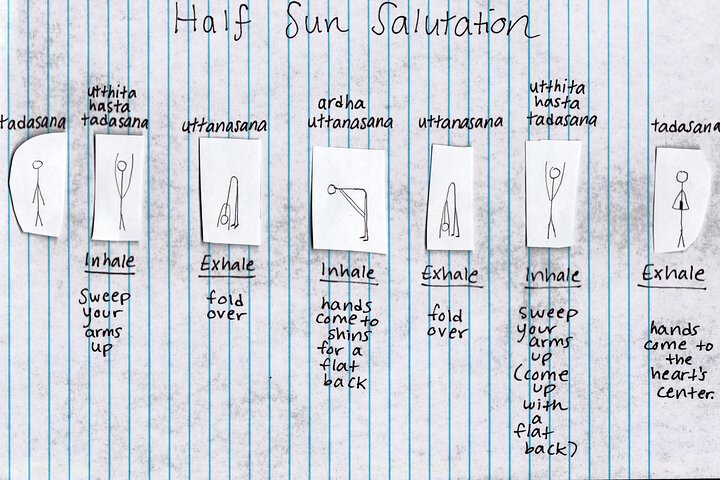 Half Sun Salutation
tadasana
utthita
hasta
tadasana
uttanasana
ardha
uttanasana
uttanasana
utthita
hasta
tadasana
tadasana
Inhale
Sweep
your
arms
up
Exhale
fold
over
Inhale
hands
come to
shins
for a
flat
back
Exhale
fold
over
Inhale
sweep
your
arms
up
(come
up
with
a
flat
back)
Exhale
hands
come to
the
heart's
center.